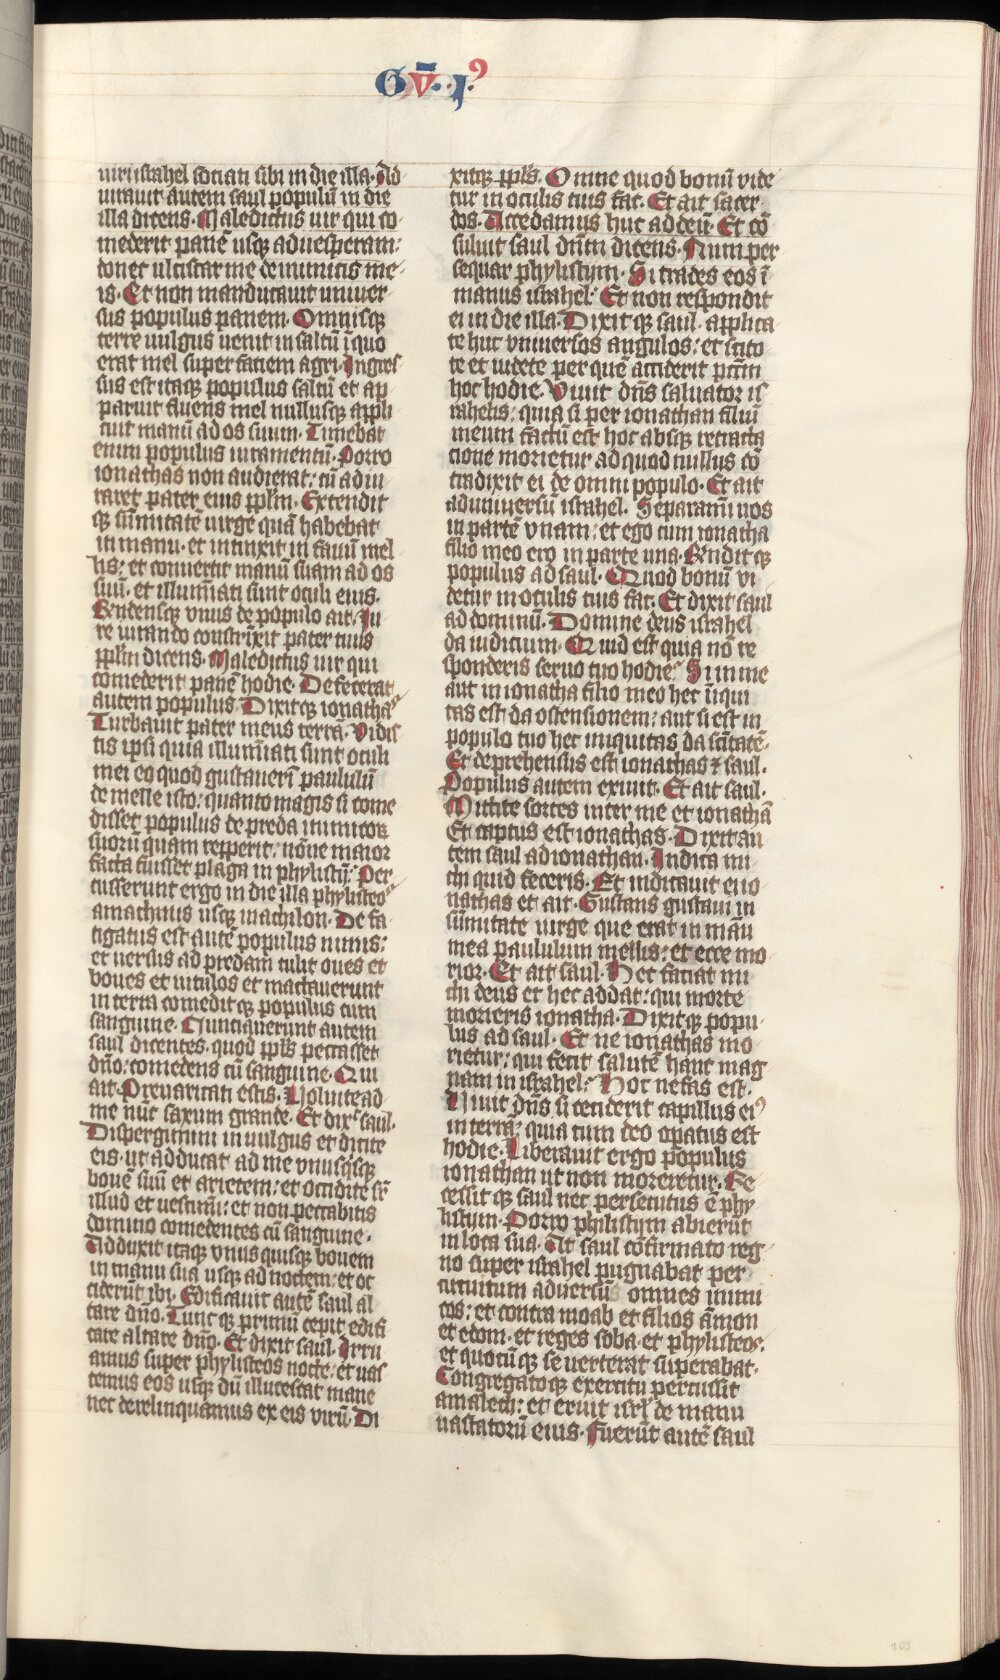 GV̄. .j.⁹
uiri israhel sociati sibi in die illa. Ad
iurauit autem saul populū in die
illa dicens. Maledictus uir qui co
mederit panē usqꝫ ad uesperam:
donec ulciscar me de inimicis me
is. Et non manducauit univer
sus populus panem. Omnisqꝫ
terre uulgus uenit in saltū ī quo
erat mel super faciem agri. Ingres
sus est itaqꝫ populus saltū et ap
paruit fluens mel nullusqꝫ appli
cuit manū ad os suum. Timebat
enim populus iuramentū. Porro
ionathas non audierat: cū adiu
raret pater eius pplm̄. Extendit
qꝫ sūmitatē uirge quā habebat
in manu. et intinxit in fauū mel
lis: et conuertit manū suam ad os
suū. et illumīati sunt oculi eius.
Rn̄densqꝫ vnus de populo ait. Iu
re iurando constrixit pater tuus
pplm̄ dicens. Maledictus uir qui
comederit panē hodie. Defecerat
autem populus. Dixitqꝫ ionathas
Turbauit pater meus terrā. Vidis
tis ipsi quia illumīati sunt oculi
mei eo quod gustauerī paululū
de melle isto: quanto magis si come
disset populus de preda inimicoꝝ
suorū quam repperit: nōne maior
facta fuisset plaga in phylistijˀ. Per
cusserunt ergo in die illa phylisteos
a machmis usqꝫ in achilon. De fa
tigatus est autē populus nimis:
et uersus ad predam tulit oues et
boues et uitulos et mactauerunt
in terra comeditqꝫ populus cum
sanguine. Nunciauerunt autem
saul dicentes. quod ppls̄ peccasset
dn̄o: comedens cū sanguine. Qui
ait. Preuaricati estis. Uoluite ad
me nūc saxum grande. Et dixˀ saul.
Dispergimini in uulgus et dicite
eis. ut adducat ad me vnusqˀsqꝫ
bouē suū et arietem: et occidite sr̄
illud et uescimī: et non peccabitis
domino comedentes cū sanguine.
Adduxit itaqꝫ vnus quisqꝫ bouem
in manu sua usqꝫ ad noctem: et oc
ciderūt ibi. Edificauit autē saul al
tare dn̄o. Tunc qꝫ primū cepit edifi
care altare dn̄o. Et dixit saul. Irru
amus super phylisteos nocte: et uas
temus eos usqꝫ dū illucescat mane
nec derelinquamus ex eis virū. Di
xitqꝫ ppls̄. Omne quod bonū vide
tur in oculis tuis fac. Et ait sacer
dos. Accedamus huc ad deū. Et cō
suluit saul dn̄m dicens. Num per
sequar phylistijm. Si trades eos ī
manus israhel: Et non respondit
ei in die illa. Dixitqꝫ saul. applica
te huc vniuersos angulos: et scito
te et uidete per quē acciderit pctm̄
hoc hodie. Viuit dn̄s saluator is
rahelis: quia si per ionathan filiū
meum factū est hoc absqꝫ retracta
cione morietur ad quod nullus cō
tradixit ei de omni populo. Et ait
ad uniuersū israhel. Separamī uos
in partē vnam: et ego cum ionatha
filio meo ero in parte una. Rn̄ditqꝫ
populus ad saul. Quod bonū vi
detur in oculis tuis fac. Et dixit saul
ad dominū. Domine deus israhel
da iudicium. Quid est quia nō re
sponderis seruo tuo hodieˀ. Si in me
aut in ionatha filio meo hec īiqui
tas est: da ostensionem: aut si est in
populo tuo hec iniquitas da sc̄itatē.
Et deprehensus est ionathas ⁊ saul.
Populus autem exiuit. Et ait saul.
Mittite sortes inter me et ionathā
Et captus est ionathas. Dixit au
tem saul ad ionathan. Indica mi
chi quid feceris. Et indicauit ei io
nathas et ait. Gustans gustaui in
sūmitate uirge que erat in māu
mea paululum mellis: et ecce mo
rior. Et ait saul. Hec faciat mi
chi deus et hec addat: qui morte
morieris ionatha. Dixitqꝫ popu
lus ad saul. Et ne ionathas mo
rietur: qui fecit salutē hanc mag
nam in israhel: Hoc nefas est.
Viuit dn̄s si ceciderit capillus ei⁹
in terrā: quia cum deo opatus est
hodie. Liberauit ergo populus
ionathan ut non moreretur. Re
cessitqꝫ saul nec persecutus ē phy
listijm. Porro philistijm abierūt
in loca sua. At saul cōfirmato reg
no super israhel pugnabat per
circuitum aduersū omnes inimi
cos: et contra moab et filios āmon
et edom. et reges soba et phylisteos.
et quocūqꝫ se uerterat superabat.
Congregatoqꝫ exercitu percussit
amalech: et eruit isrl̄ de manu
uastatorū eius. Fuerūt autē saul
103